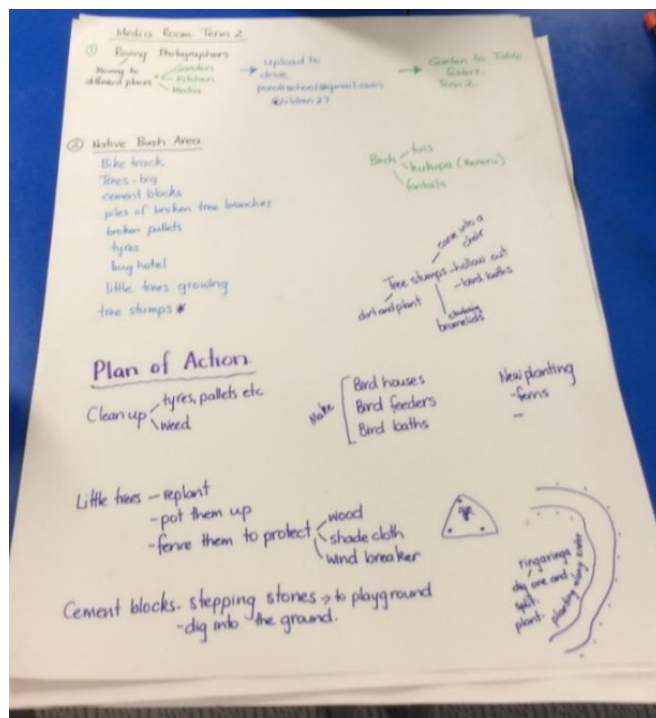 Media Room Term 2
① Roving Photographers
Moving to
different places
Garden
Kitchen
Media
Upload to
drive
Garden to Table
folder
Term 2
② Native Bush Area.
Bike track
Trees - big
cement blocks
piles of broken tree branches
broken pallets
tyres
bug hotel
little trees growing
tree stumps *
Birds
tuis
kukupa (Kereru)
fantails
Tree stumps
carve into a
chair
- hollow out
- bird baths
dirt and plant
Plan of Action
Clean up
tyres, pallets etc
weed
Make
Bird houses
Bird feeders
Bird baths
New planting
- ferns
-
Little trees - replant
- pot them up
- fence them to protect
wood
shade cloth
wind breaker
Cement blocks - stepping stones → to playground
- dig into the ground.
ringaringa
dig one and
split
plant.
planting along